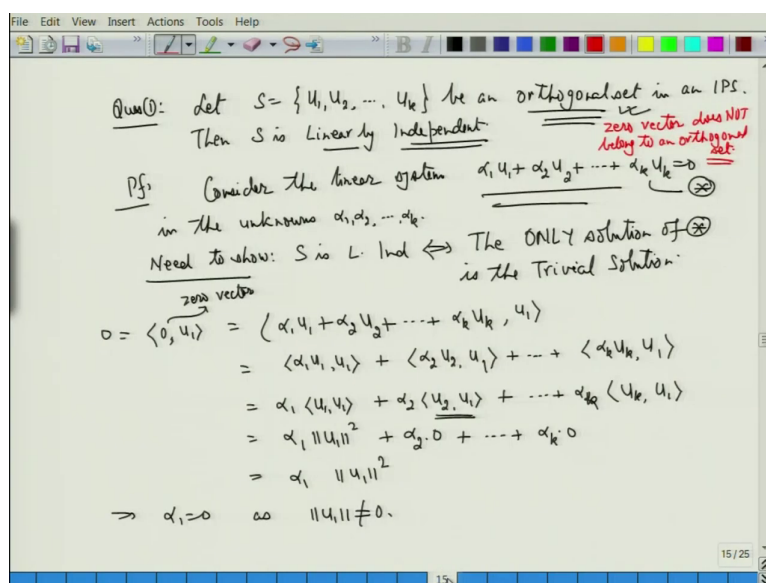 File Edit View Insert Actions Tools Help
Ques①: Let S = {u₁, u₂, ..., uₖ} be an orthogonal set in an IPS.
zero vector does NOT
belong to an orthogonal
set.
Then S is Linearly Independent
Pf: Consider the linear system α₁u₁ + α₂u₂ + ... + αₖuₖ = 0 ⊛
in the unknowns α₁, α₂, ..., αₖ.
Need to show: S is L. Ind ⇔ The ONLY solution of ⊛
is the Trivial Solution.
zero vector
0 = ⟨0, u₁⟩ = ⟨α₁u₁ + α₂u₂ + ... + αₖuₖ, u₁⟩
= ⟨α₁u₁, u₁⟩ + ⟨α₂u₂, u₁⟩ + ... + ⟨αₖuₖ, u₁⟩
= α₁ ⟨u₁, u₁⟩ + α₂ ⟨u₂, u₁⟩ + ... + αₖ ⟨uₖ, u₁⟩
= α₁ ||u₁||² + α₂·0 + ... + αₖ·0
= α₁ ||u₁||²
⇒ α₁ = 0 as ||u₁|| ≠ 0.
15/25
15